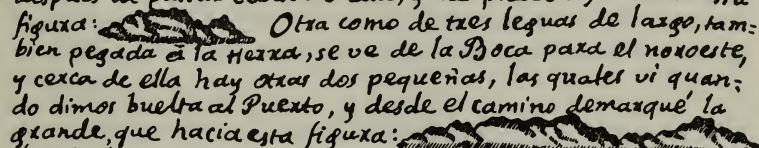 figura: Otra como de tres leguas de largo, tam-
bien pegada à la tierra, se ve de la Boca para el noroeste,
y cerca de ella hay otras dos pequeñas, las quales vi quan-
do dimos buelta al Puerto, y desde el camino demarqué la
grande, que hacia esta figura: